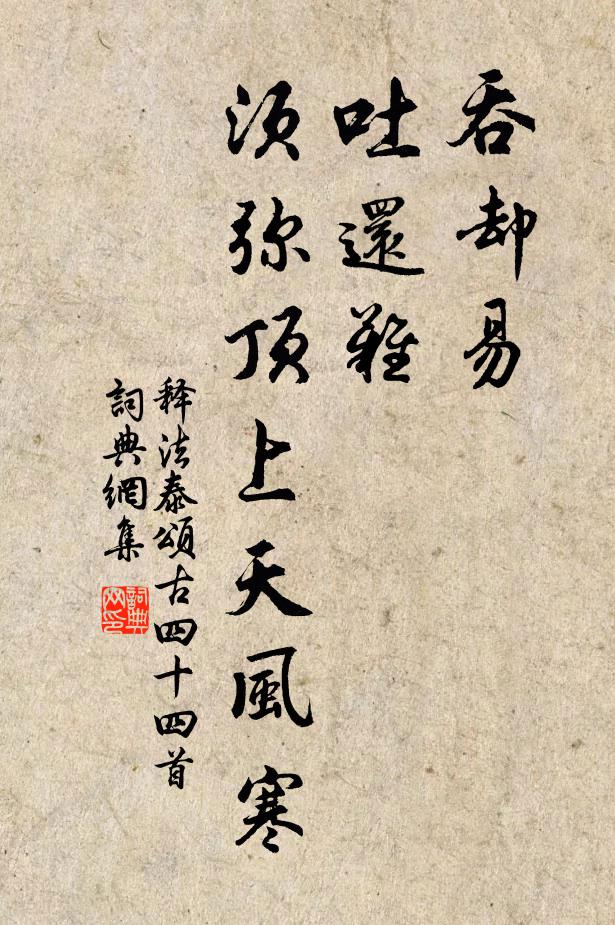 吞却易
吐還難
須弥頂上天風寒
释法泰頌古四十四首
詞典網集
詞典
网印